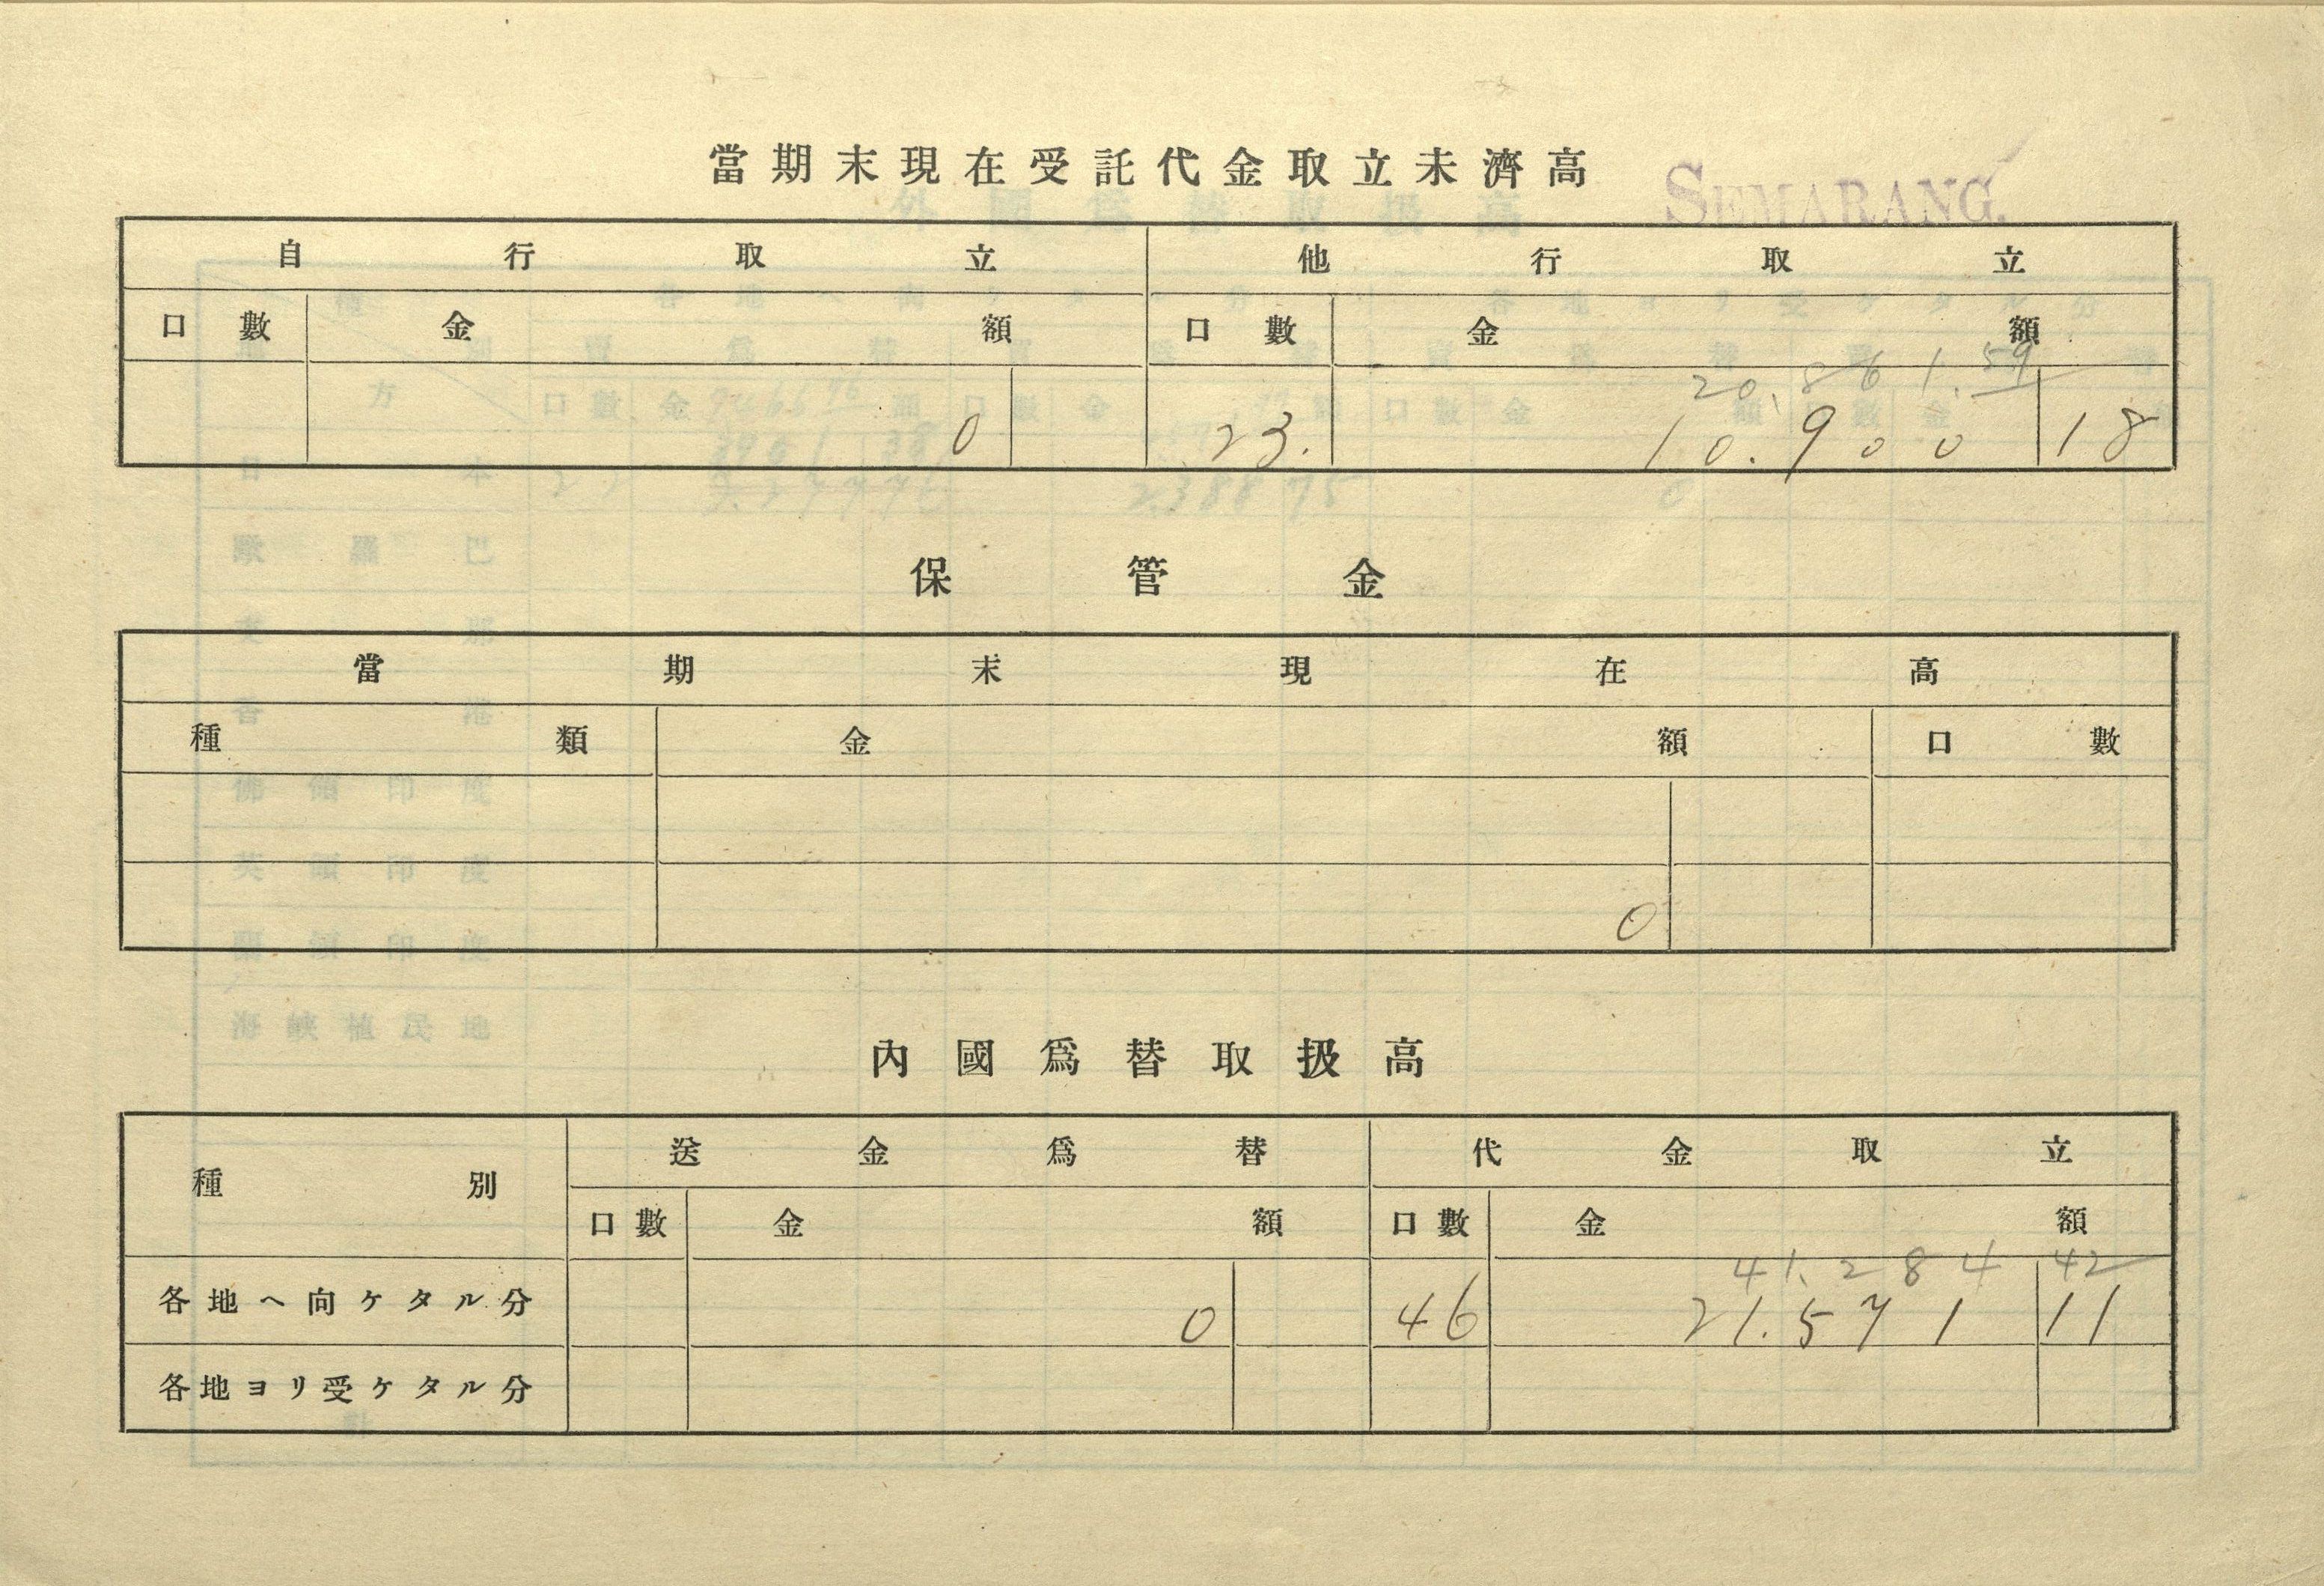 當期末現在受託代金取立未濟高
SEMARANG.
自行取立 他行取立
口數 金額 口數 金額
20,861.59
0 23. 10.900 18
保管金
當期末現在高
種類 金額 口數
0
內國爲替取扱高
種別 送金爲替 代金取立
口數 金額 口數 金額
41.284 42
各地ヘ向ケタル分 0 46 21.571 11
各地ヨリ受ケタル分